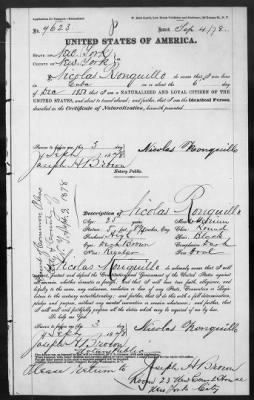 No. 9623
Issued Sep 4/78
UNITED STATES OF AMERICA.
STATE OF New York
COUNTY OF New York
I, Nicolas Ronquillo do swear that I was born
in Cuba on or about the 6th day
of Dec 1852 that I am a NATURALIZED AND LOYAL CITIZEN OF THE
UNITED STATES, and about to travel abroad; and further, that I am the Identical Person
described in the Certificate of Naturalization, herewith presented.
Sworn to before me this 3 day
of Sept 1878
Nicolas Ronquillo
Joseph H. Brown
Notary Public.
Description of Nicolas Ronquillo
Age
Stature, 5 feet
Forehead, High
Eyes, Dark Brown
Nose, Regular
Mouth, Medium
Chin, Round
Hair, Black
Complexion, Dark
Face, Oval
I, Nicolas Ronquillo do solemnly swear that I will
support, protect and defend the Constitution and Government of the United States against
all enemies, whether domestic or foreign, and that I will bear true faith, allegiance, and
loyalty to the same, any ordinance, resolution or law of any State, Convention or Legis-
lature to the contrary notwithstanding; and further, that I do this with a full determination,
pledge and purpose, without any mental reservation or evasion whatsoever; and further, that
I will well and faithfully perform all the duties which may be required of me by law.
So help me God.
Sworn to before me this 3 day
of Sept 1878
Nicolas Ronquillo
Joseph H. Brown
Notary Public
Please return to
Joseph H Brown
Room 23 New Court House
New York City